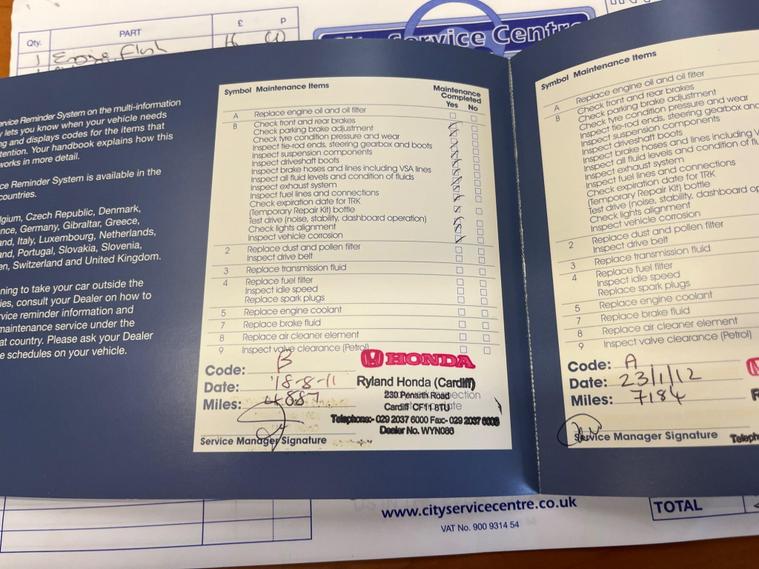 Qty. PART £ P
1 Engine Flush
Service Centre
ervice Reminder System on the multi-information
y lets you know when your vehicle needs
ng and displays codes for the items that
tention. Your handbook explains how this
works in more detail.
ce Reminder System is available in the
countries.
lgium, Czech Republic, Denmark,
nce, Germany, Gibraltar, Greece,
and, Italy, Luxembourg, Netherlands,
and, Portugal, Slovakia, Slovenia,
en, Switzerland and United Kingdom.
ning to take your car outside the
ies, consult your Dealer on how to
vice reminder information and
maintenance service under the
at country. Please ask your Dealer
e schedules on your vehicle.
Symbol Maintenance Items Maintenance Completed
Yes No
A Replace engine oil and oil filter
B Check front and rear brakes
Check parking brake adjustment
Check tyre condition pressure and wear
Inspect tie-rod ends, steering gearbox and boots
Inspect suspension components
Inspect driveshaft boots
Inspect brake hoses and lines including VSA lines
Inspect all fluid levels and condition of fluids
Inspect exhaust system
Inspect fuel lines and connections
Check expiration date for TRK
(Temporary Repair Kit) bottle
Test drive (noise, stability, dashboard operation)
Check lights alignment
Inspect vehicle corrosion
2 Replace dust and pollen filter
Inspect drive belt
3 Replace transmission fluid
4 Replace fuel filter
Inspect idle speed
Replace spark plugs
5 Replace engine coolant
7 Replace brake fluid
8 Replace air cleaner element
9 Inspect valve clearance (Petrol)
Code: B
Date: 18-8-11
Miles: 4887
Service Manager Signature
HONDA
Ryland Honda (Cardiff)
230 Penarth Road
Cardiff CF11 8TU
Telephone:- 029 2037 6000 Fax:- 029 2037 6005
Dealer No. WYN086
Symbol Maintenance Items
A Replace engine oil and oil filter
B Check front and rear brakes
Check parking brake adjustment
Check tyre condition pressure and wear
Inspect tie-rod ends, steering gearbox and
Inspect suspension components
Inspect driveshaft boots
Inspect brake hoses and lines including V
Inspect all fluid levels and condition of flu
Inspect exhaust system
Inspect fuel lines and connections
Check expiration date for TRK
(Temporary Repair Kit) bottle
Test drive (noise, stability, dashboard op
Check lights alignment
Inspect vehicle corrosion
2 Replace dust and pollen filter
Inspect drive belt
3 Replace transmission fluid
4 Replace fuel filter
Inspect idle speed
Replace spark plugs
5 Replace engine coolant
7 Replace brake fluid
8 Replace air cleaner element
9 Inspect valve clearance (Petrol)
Code: A
Date: 23/1/12
Miles: 7184
Service Manager Signature
Teleph
www.cityservicecentre.co.uk
VAT No. 900 9314 54
TOTAL